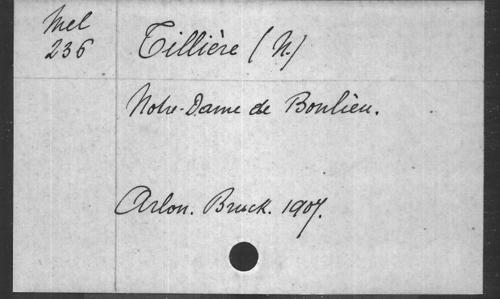 Mel
236
Tillière (N.)
Notre-Dame de Bonlieu.
Arlon. Bruck. 1907.